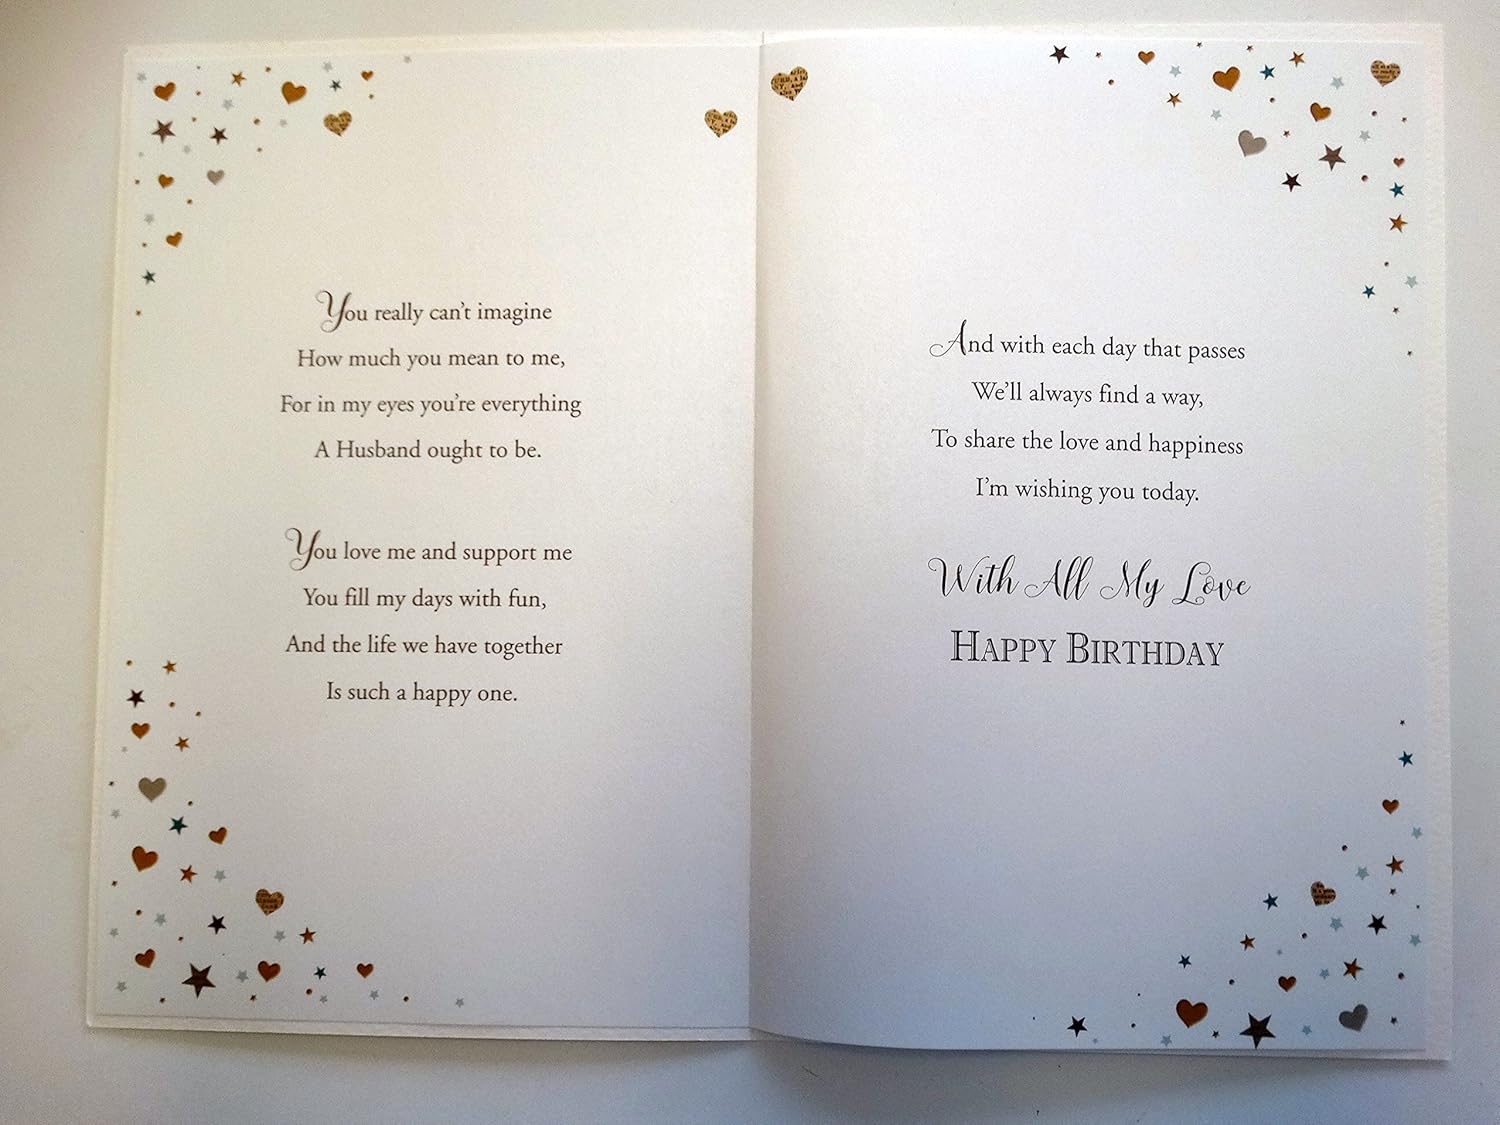 You really can't imagine
How much you mean to me,
For in my eyes you're everything
A Husband ought to be.
You love me and support me
You fill my days with fun,
And the life we have together
Is such a happy one.
And with each day that passes
We'll always find a way,
To share the love and happiness
I'm wishing you today.
With All My Love
HAPPY BIRTHDAY